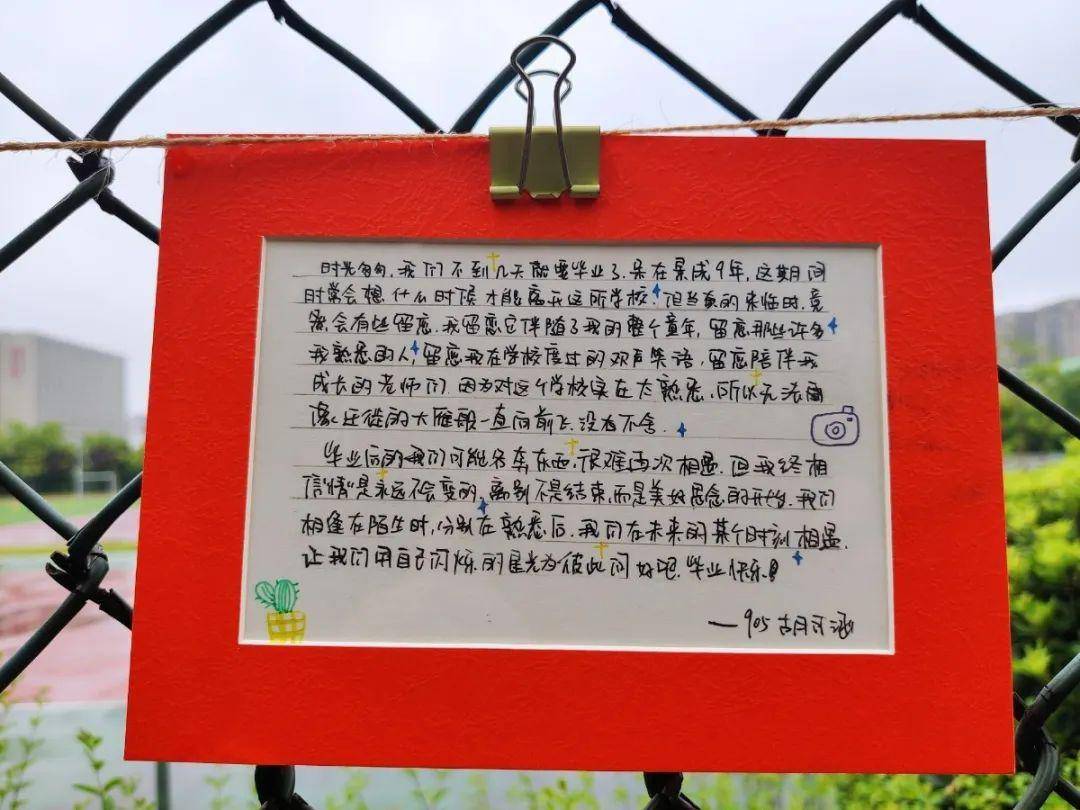 时光匆匆，我们不到几天就要毕业了，呆在景成9年，这期间
时常会想什么时候才能离开这所学校。但当真的来临时，竟
然会有些留恋。我留恋它伴随了我的整个童年，留恋那些许多
我熟悉的人，留恋我在学校度过的欢声笑语，留恋陪伴我
成长的老师们，因为对这个学校实在太熟悉，所以无法同
迁徙的大雁般一直向前飞，没有不舍。
毕业后的我们可能各奔东西，很难再次相遇，但我终相
信"情"是永远不会变的，离别不是结束，而是美好思念的开始，我们
相逢在陌生时，分别在熟悉后，我们在未来的某个时刻相遇，
让我们用自己闪烁的星光为彼此问好吧，毕业快乐！
—905 胡可涵